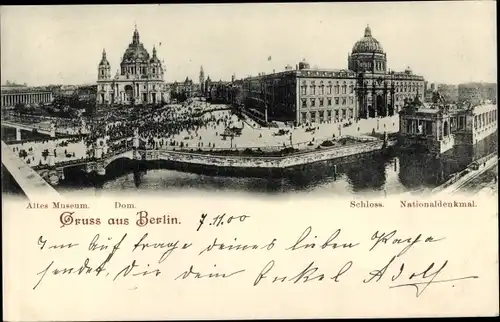 Altes Museum. Dom. Schloss. Nationaldenkmal.
Gruss aus Berlin. 7.11.00
Im Auftrage deines lieben Papa
sendet dir dein Onkel Adolf